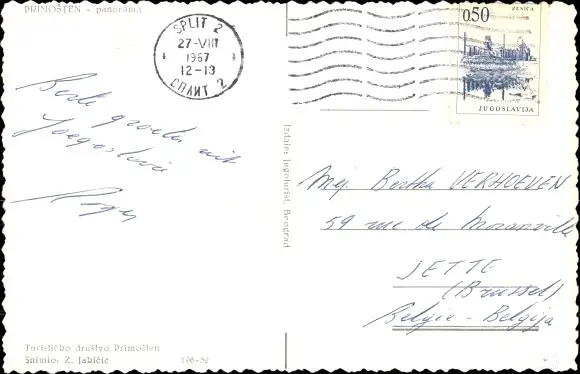 PRIMOŠTEN - panorama
SPLIT 2
27-VIII
1967
12-13
СПЛИТ 2
ZENICA
0,50
JUGOSLAVIJA
Beste groeten uit
Joegoslavië
Roger
Izdaje: Jugoturist, Beograd
Mej. Bertha VERHOEVEN
59 rue de
JETTE
(Brussel)
Belgie - Belgija
Turističko društvo Primošten
Snimio: Z. Jabičić
196-52